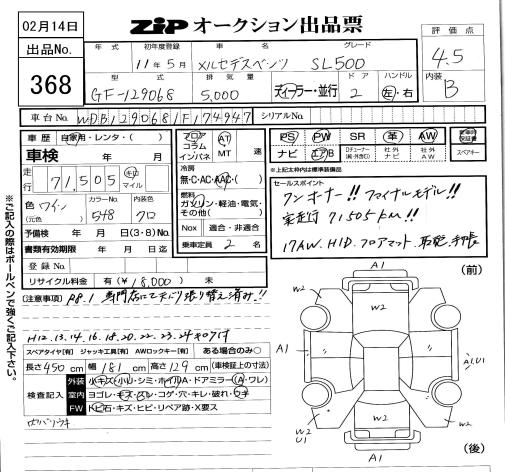 02月14日
出品No.
368
ZIP オークション出品票
評価点
4.5
内装
B
年式 初年度登録 車名 グレード
11年5月 メルセデスベンツ SL500
型式 排気量 ドア ハンドル
GF-129068 5,000 ディーラー・並行 2 左・右
車台No. WDB1290681F174947 シリアルNo.
車歴 自家用・レンタ・( )
車検 年 月
走行 71,505 キロ マイル
色 ワイン (元色) カラーNo. 548 内装 クロ
予備検 年 月 日(3・8)No.
書類有効期限 年 月 日迄
登録No.
リサイクル料金 有(¥18,000) 未
フロア コラム インパネ AT MT 速
冷房 無・C・AC・AAC・( )
燃料 ガソリン・軽油・電気・その他( )
Nox 適合・非適合
乗車定員 2 名
PS PW SR 革 AW
ナビ エアB Dチューナー 社外ナビ 社外AW スペアキー
※上記太枠内は標準装備品
セールスポイント
ワンオーナー!! ファイナルモデル!!
実走行 71505km!!
17AW、HID、フロアマット、取説、手帳
※ご記入の際はボールペンで強くご記入下さい。
(注意事項) R8.1 専門店にて天バリ張り替え済み!!
H12.13.14.16.18.20.22.23.24キロ付
スペアタイヤ[有] ジャッキ工具[有] AWロックキー[有] ある場合のみ○
長さ 450 cm 幅 181 cm 高さ 129 cm (車検証上の寸法)
検査記入
外装 小キズ・小凹・シミ・ホイルA・ドアミラー(A・ワレ)
室内 ヨゴレ・キズ・スレ・コゲ・穴・キレ・破れ・ウキ
FW トビ石・キズ・ヒビ・リペア跡・X要ス
A1
(前)
W2
W2
W2
A1
W2
A1,U1
W2
U1
W2
W2
A1
(後)